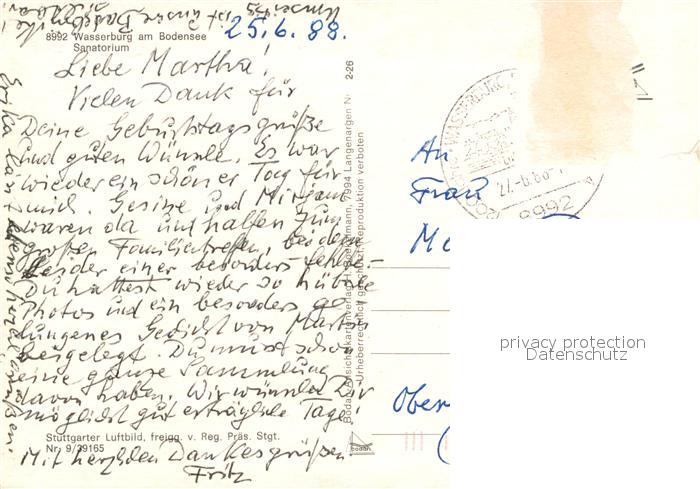 8992 Wasserburg am Bodensee
Sanatorium
25.6.88.
Liebe Martha!
Vielen Dank für
Deine Geburtstagsgrüße
und guten Wünsche. Es war
wieder ein schöner Tag für
mich. Gesine und Mirjam
waren da und halfen zum
großen Familientreffen, bei dem
leider einer besonders fehlte.-
Du hattest wieder so hübsche
Photos und ein besonders ge-
lungenes Gedicht von
beigelegt. Du musst schon
eine ganze Sammlung
davon haben. Wir wünschen Dir
möglichst gut erträgliche Tage!
Stuttgarter Luftbild, freigg. v. Reg. Präs. Stgt.
Nr. 9/39165
Mit herzlichen Dankesgrüßen
Fritz
Erika läßt ebenso herzlich grüßen.
2-26
7994 Langenargen
Reproduktion verboten
bodan
WASSERBURG
8992
An
Frau
Ober
privacy protection
Datenschutz